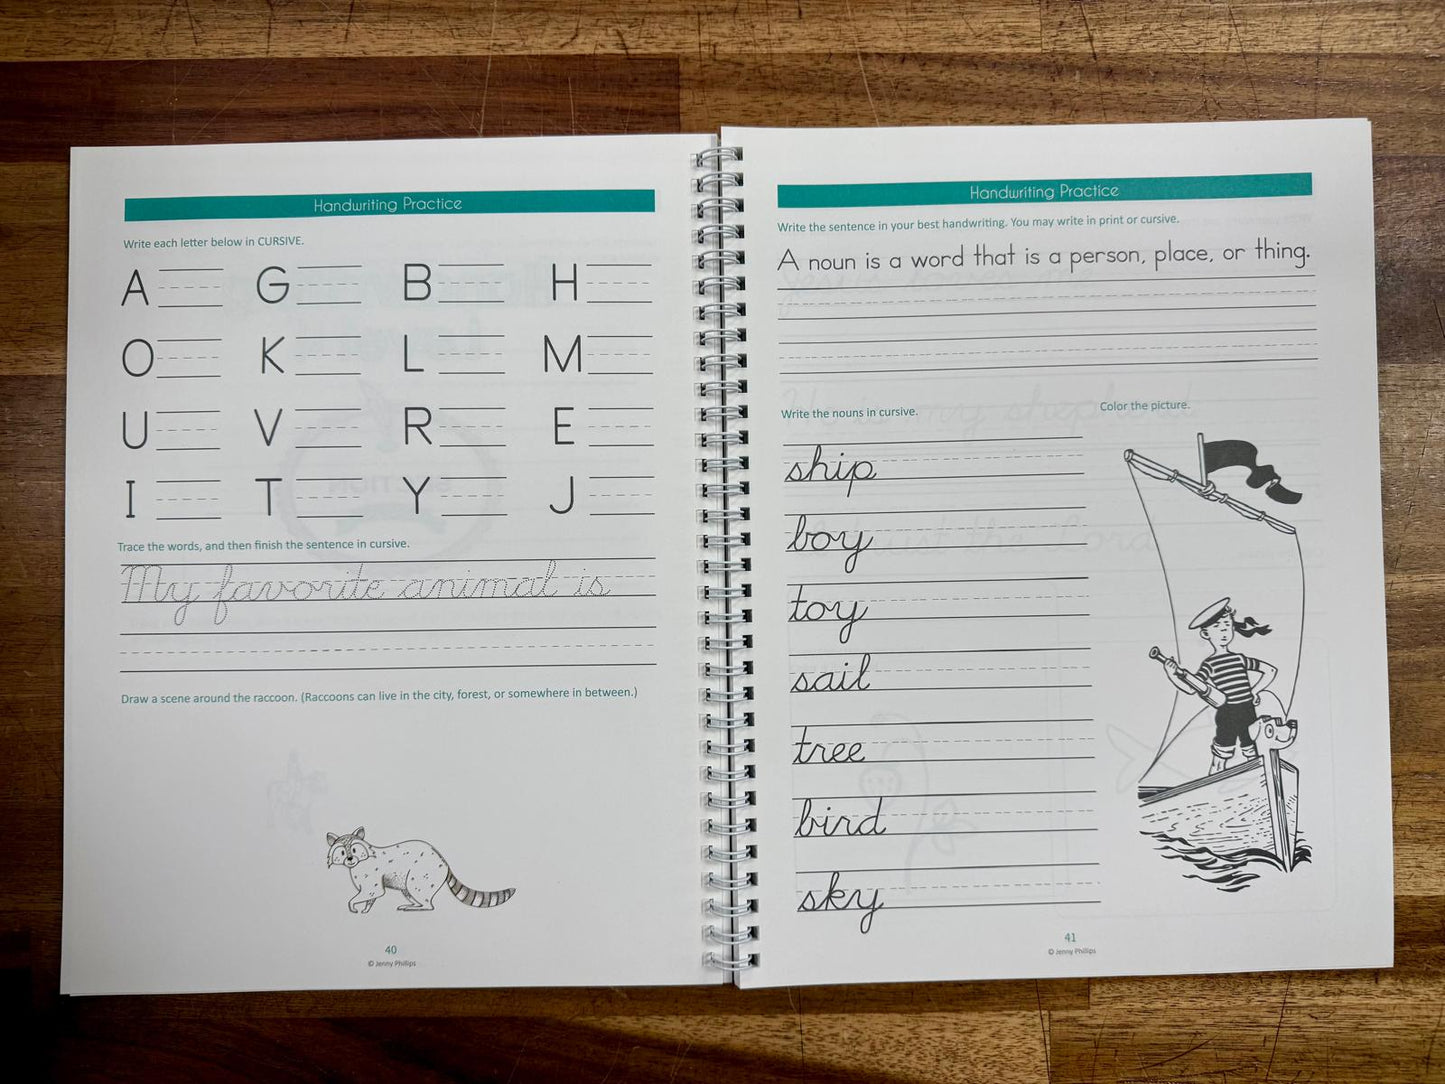 Handwriting Practice
Write each letter below in CURSIVE.
A G B H
O K L M
U V R E
I T Y J
Trace the words, and then finish the sentence in cursive.
My favorite animal is
Draw a scene around the raccoon. (Raccoons can live in the city, forest, or somewhere in between.)
40
© Jenny Phillips
Handwriting Practice
Write the sentence in your best handwriting. You may write in print or cursive.
A noun is a word that is a person, place, or thing.
Write the nouns in cursive.
Color the picture.
ship
boy
toy
sail
tree
bird
sky
41
© Jenny Phillips